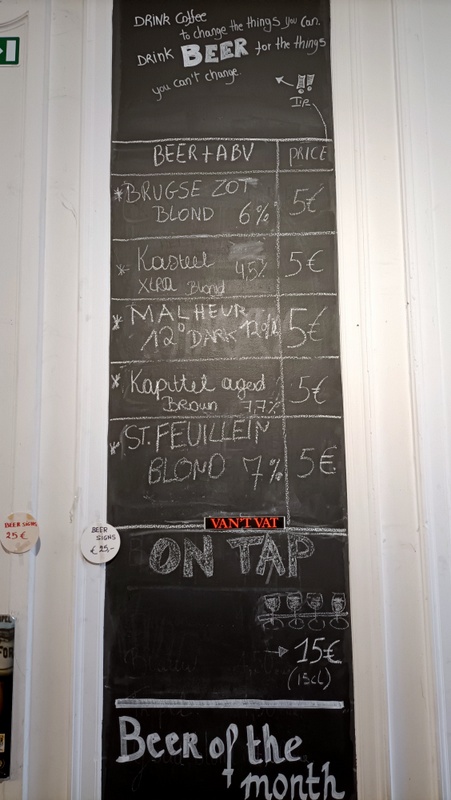 DRINK Coffee
to change the things you can.
Drink BEER for the things
you can't change.
!!
Tip
BEER + ABV PRICE
* BRUGSE ZOT
BLOND 6% 5€
* Kasteel
XTRA Blond 4.5% 5€
* MALHEUR
12° DARK 12% 5€
* Kapittel aged
Brown 7.7% 5€
* ST. FEUILLEIN
BLOND 7% 5€
VAN'T VAT
BEER SIGNS
25 €
BEER
SIGNS
€ 25,-
ON TAP
→ 15€
(15cl)
Beer of the
month